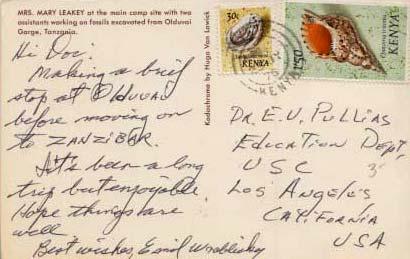 MRS. MARY LEAKEY at the main camp site with two
assistants working on fossils excavated from Olduvai
Gorge, Tanzania.
Hi Doc:
Making a brief
stop at Olduvai
before moving on
to ZANZIBAR.
It's been a long
trip but enjoyable.
Hope things are
well.
Best wishes, Emil Wroblisky
Kodachrome by Hugo Van Lawick
30c
KENYA
KENYA
1/50
75
KENYA
DR. E.V. PULLIAS
Education Dept,
USC
Los Angeles
California
USA